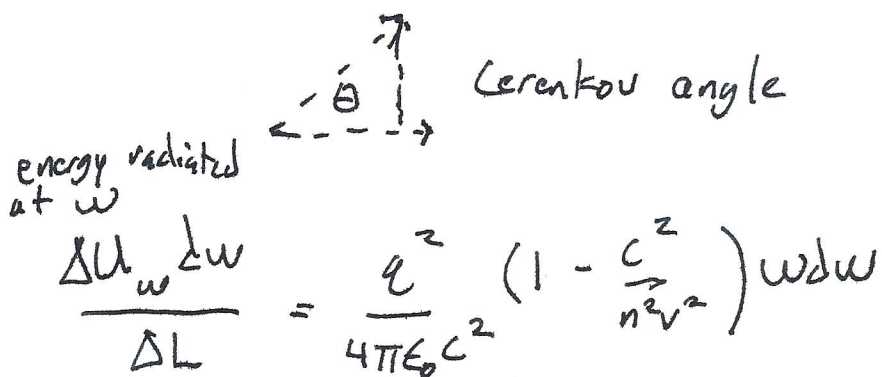 θ Cerenkov angle
energy radiated
at ω
ΔU_ω dω / ΔL = q² / 4πε₀c² (1 - c² / n²v²) ω dω